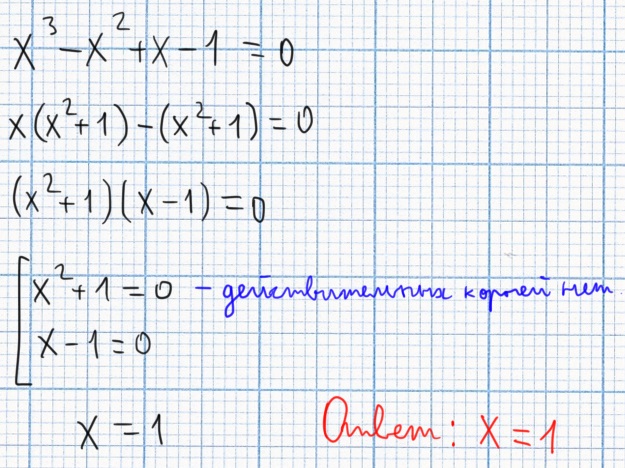 x³ − x² + x − 1 = 0
x(x² + 1) − (x² + 1) = 0
(x² + 1)(x − 1) = 0
x² + 1 = 0 – действительных корней нет.
x − 1 = 0
x = 1
Ответ: x = 1